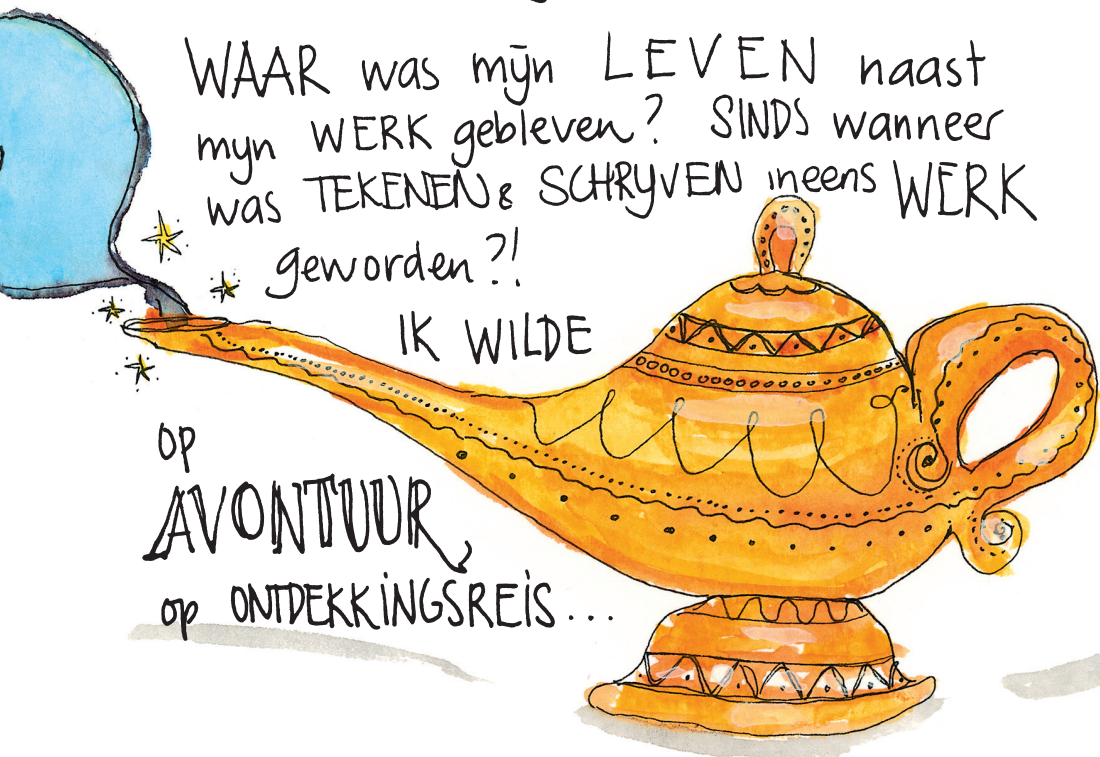 WAAR was mijn LEVEN naast
mijn WERK gebleven? SINDS wanneer
was TEKENEN & SCHRIJVEN ineens WERK
geworden?!
IK WILDE
op
AVONTUUR,
op ONTDEKKINGSREIS...